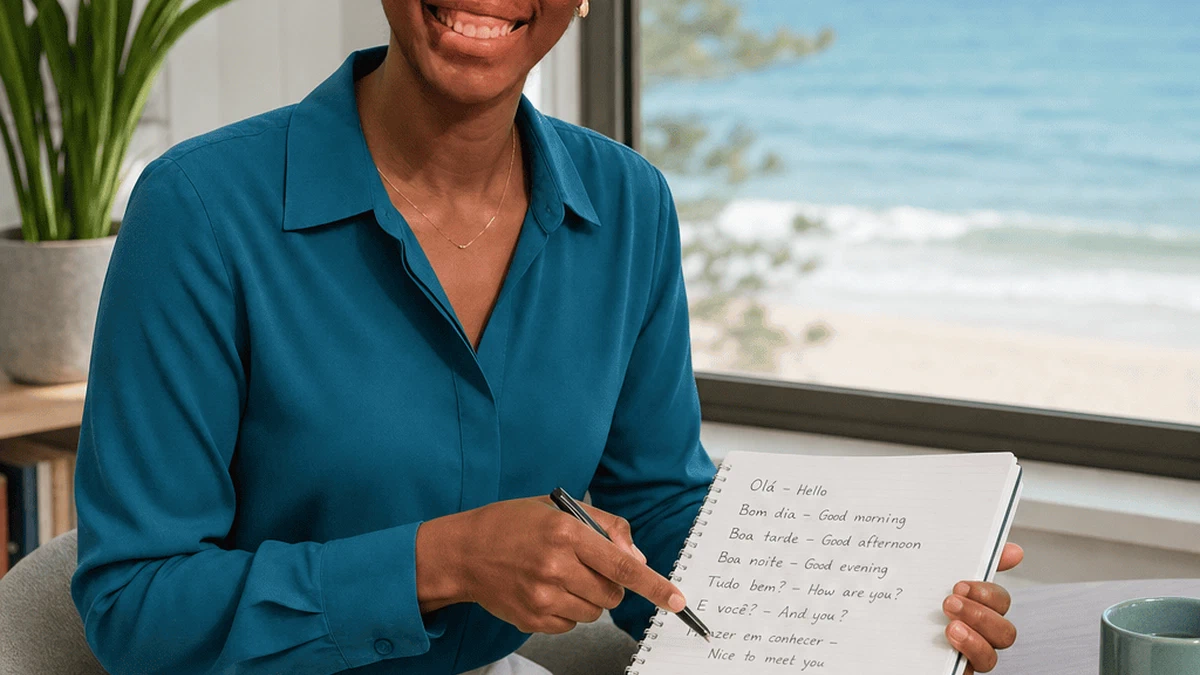 Olá – Hello
Bom dia – Good morning
Boa tarde – Good afternoon
Boa noite – Good evening
Tudo bem? – How are you?
E você? – And you?
em conhecer –
Nice to meet you